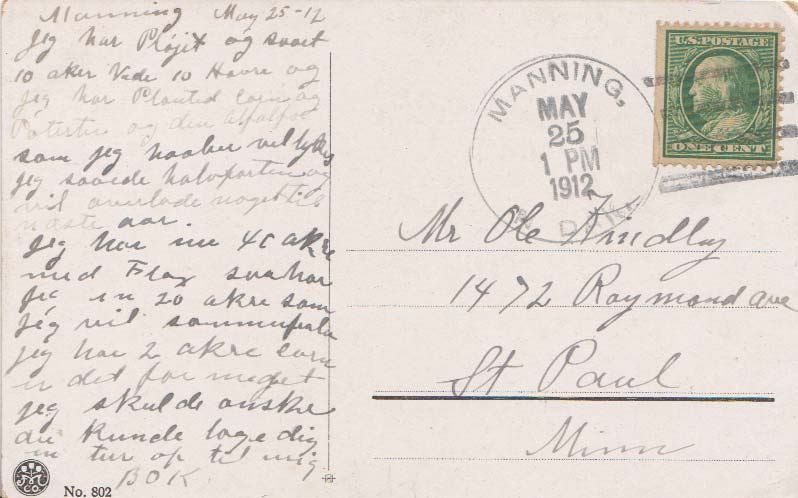 Manning May 25-12
Jeg har Pløjet og saaet
10 aker Vede 10 Havre og
jeg har Planted Corn og
Poteter og den alfalfa
som jeg haaber vel lykkes
jeg saaede halvparten og
vil overlade noget til
næste aar.
Jeg har nu 40 akre
med Flax saa har
jeg en 20 akre som
jeg vil sommer
jeg har 2 akre corn
er det for meget
jeg skulde onske
du kunde tage dig
en tur op til mig
BOK
No. 802
MANNING,
MAY
25
1 PM
1912
N. DAK.
U.S. POSTAGE
ONE CENT
Mr Ole Findlay
1472 Raymond ave
St Paul
Minn